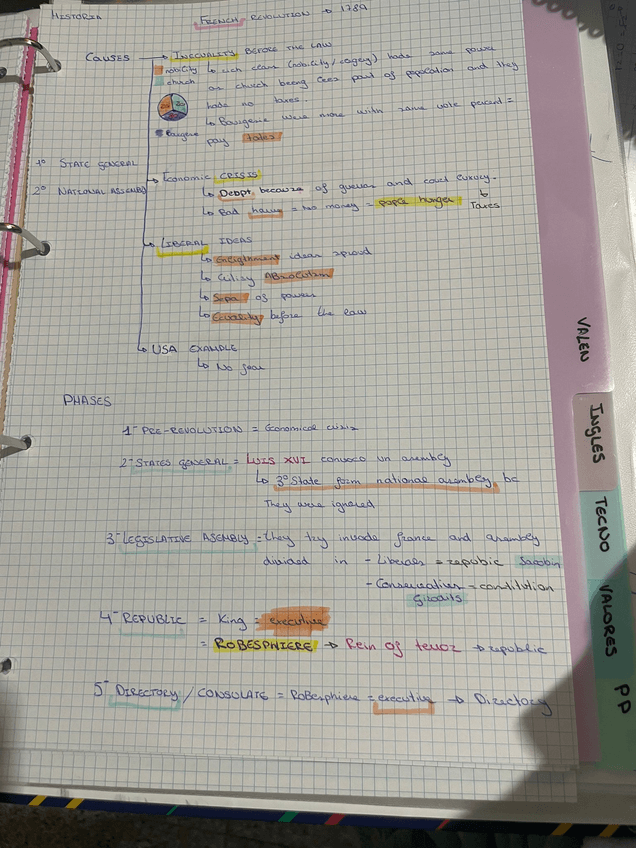 HISTORIA
FRENCH REVOLUTION → 1789
CAUSES → INEQUALITY BEFORE THE LAW
nobility ↳ rich clan (nobility/clergy) hads same power
church an church being less part of popoation and they
hads no taxes.
Bourgeoie ↳ Bourgeoie were more with same vote percent =
pay taxes
1º STATE GENERAL
→ Economic CRISIS
2º NATIONAL ASSEMBLY
↳ Debpt because of guerras and court luxury.
↳ Bad = no money = pople hunger Taxes
↳ LIBERAL IDEAS
↳ Enlighment ideas sproud
↳ ABsolutism
↳ Sepa of power
↳ Equality before the law
↳ USA EXAMPLE
↳ No fear
PHASES
1- PRE-REVOLUTION = Economical crisis
2- STATES GENERAL = LUIS XVI convoco un asembley
↳ 3º State form national asembley bc
They were ignored
3- LEGISLATIVE ASEMBLY = they try invade france and asembley
divided in - Liberales = republic Jacobin
- Conservatives = constitution
Girodits
4- REPUBLIC = King = executive
= ROBESPHIERE → Rein of terror → republic
5- DIRECTORY / CONSULATE = Robesphiere = executive → Directory
VALEN
INGLES
TECNO
VALORES
PP